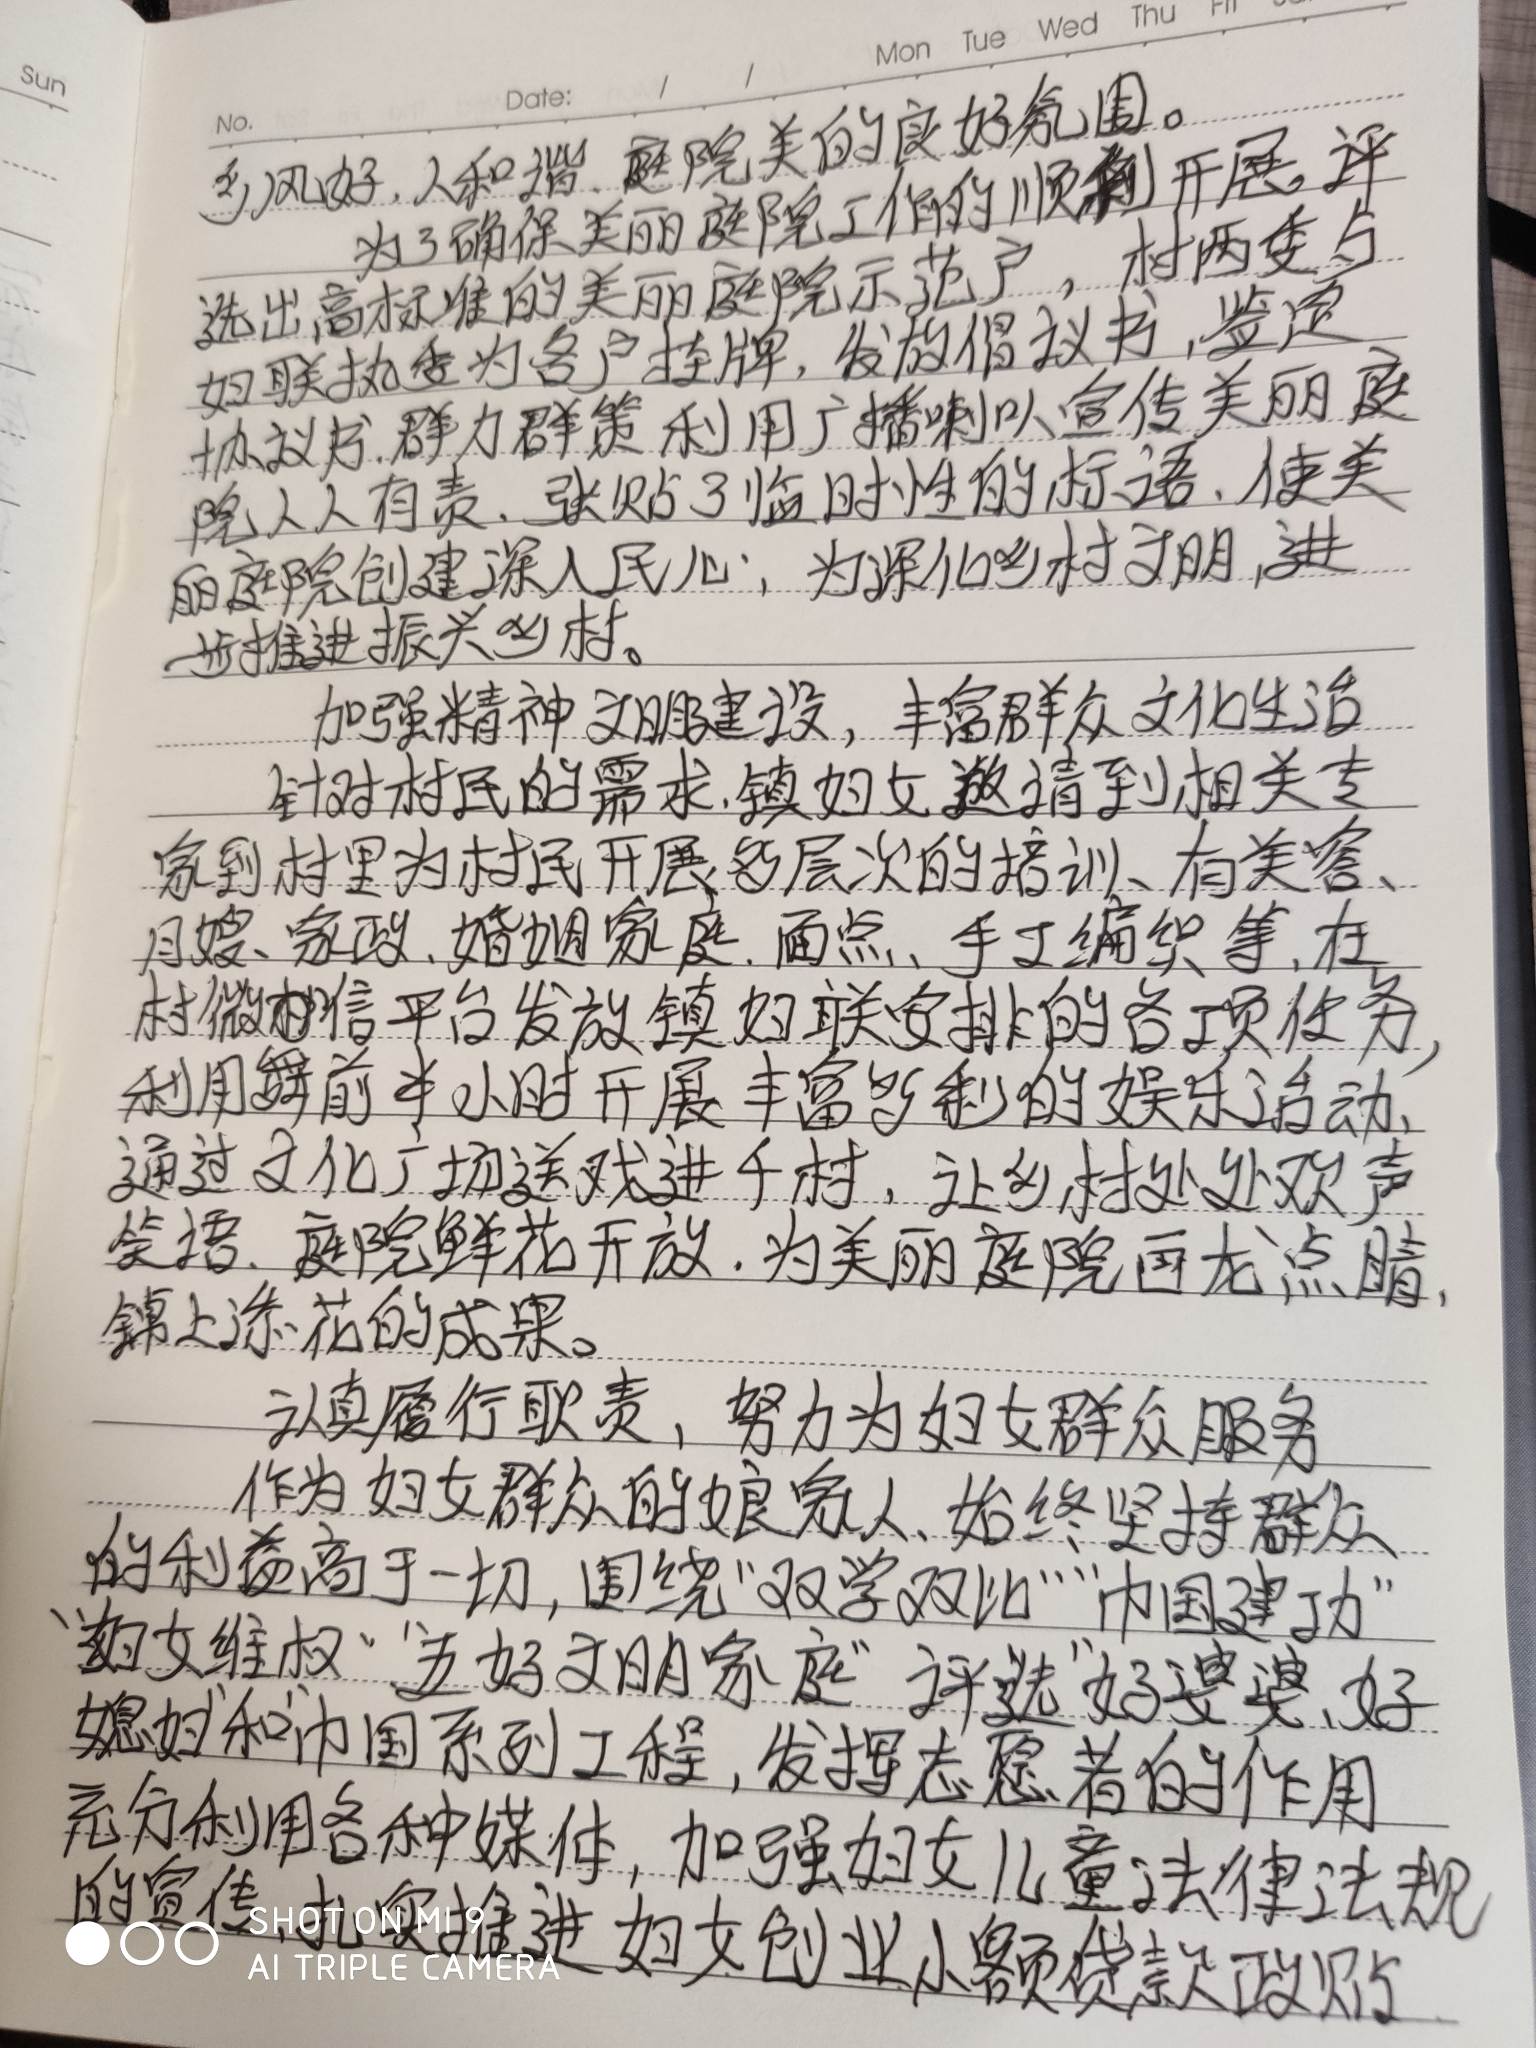 Sun
No. Date: / / Mon Tue Wed Thu Fri
乡风好、人和谐、庭院美的良好氛围。
为了确保美丽庭院工作的顺利开展。评
选出高标准的美丽庭院示范户，村两委与
妇联执委为各户挂牌，发放倡议书，签定
协议书.群力群策利用广播喇叭宣传美丽庭
院人人有责、张贴了临时性的标语、使美
丽庭院创建深入民心，为深化乡村文明，进
一步推进振兴乡村。
加强精神文明建设，丰富群众文化生活
针对村民的需求、镇妇女邀请到相关专
家到村里为村民开展多层次的培训、有美容、
月嫂、家政、婚姻家庭、面点、手工编织等、在
村微信平台发放镇妇联安排的各项任务，
利用舞前半小时开展丰富多彩的娱乐活动、
通过文化广场送戏进千村，让乡村处处欢声
笑语、庭院鲜花开放、为美丽庭院画龙点睛，
锦上添花的成果。
认真履行职责，努力为妇女群众服务
作为妇女群众的娘家人、始终坚持群众
的利益高于一切，围绕“双学双比”“巾国建功”
“妇女维权”“五好文明家庭”评选“好婆婆、好
媳妇”和“巾国系列工程，发挥志愿者的作用
充分利用各种媒体，加强妇女儿童法律法规
的宣传、扎实推进妇女创业小额贷款政贴
SHOT ON MI 9
AI TRIPLE CAMERA